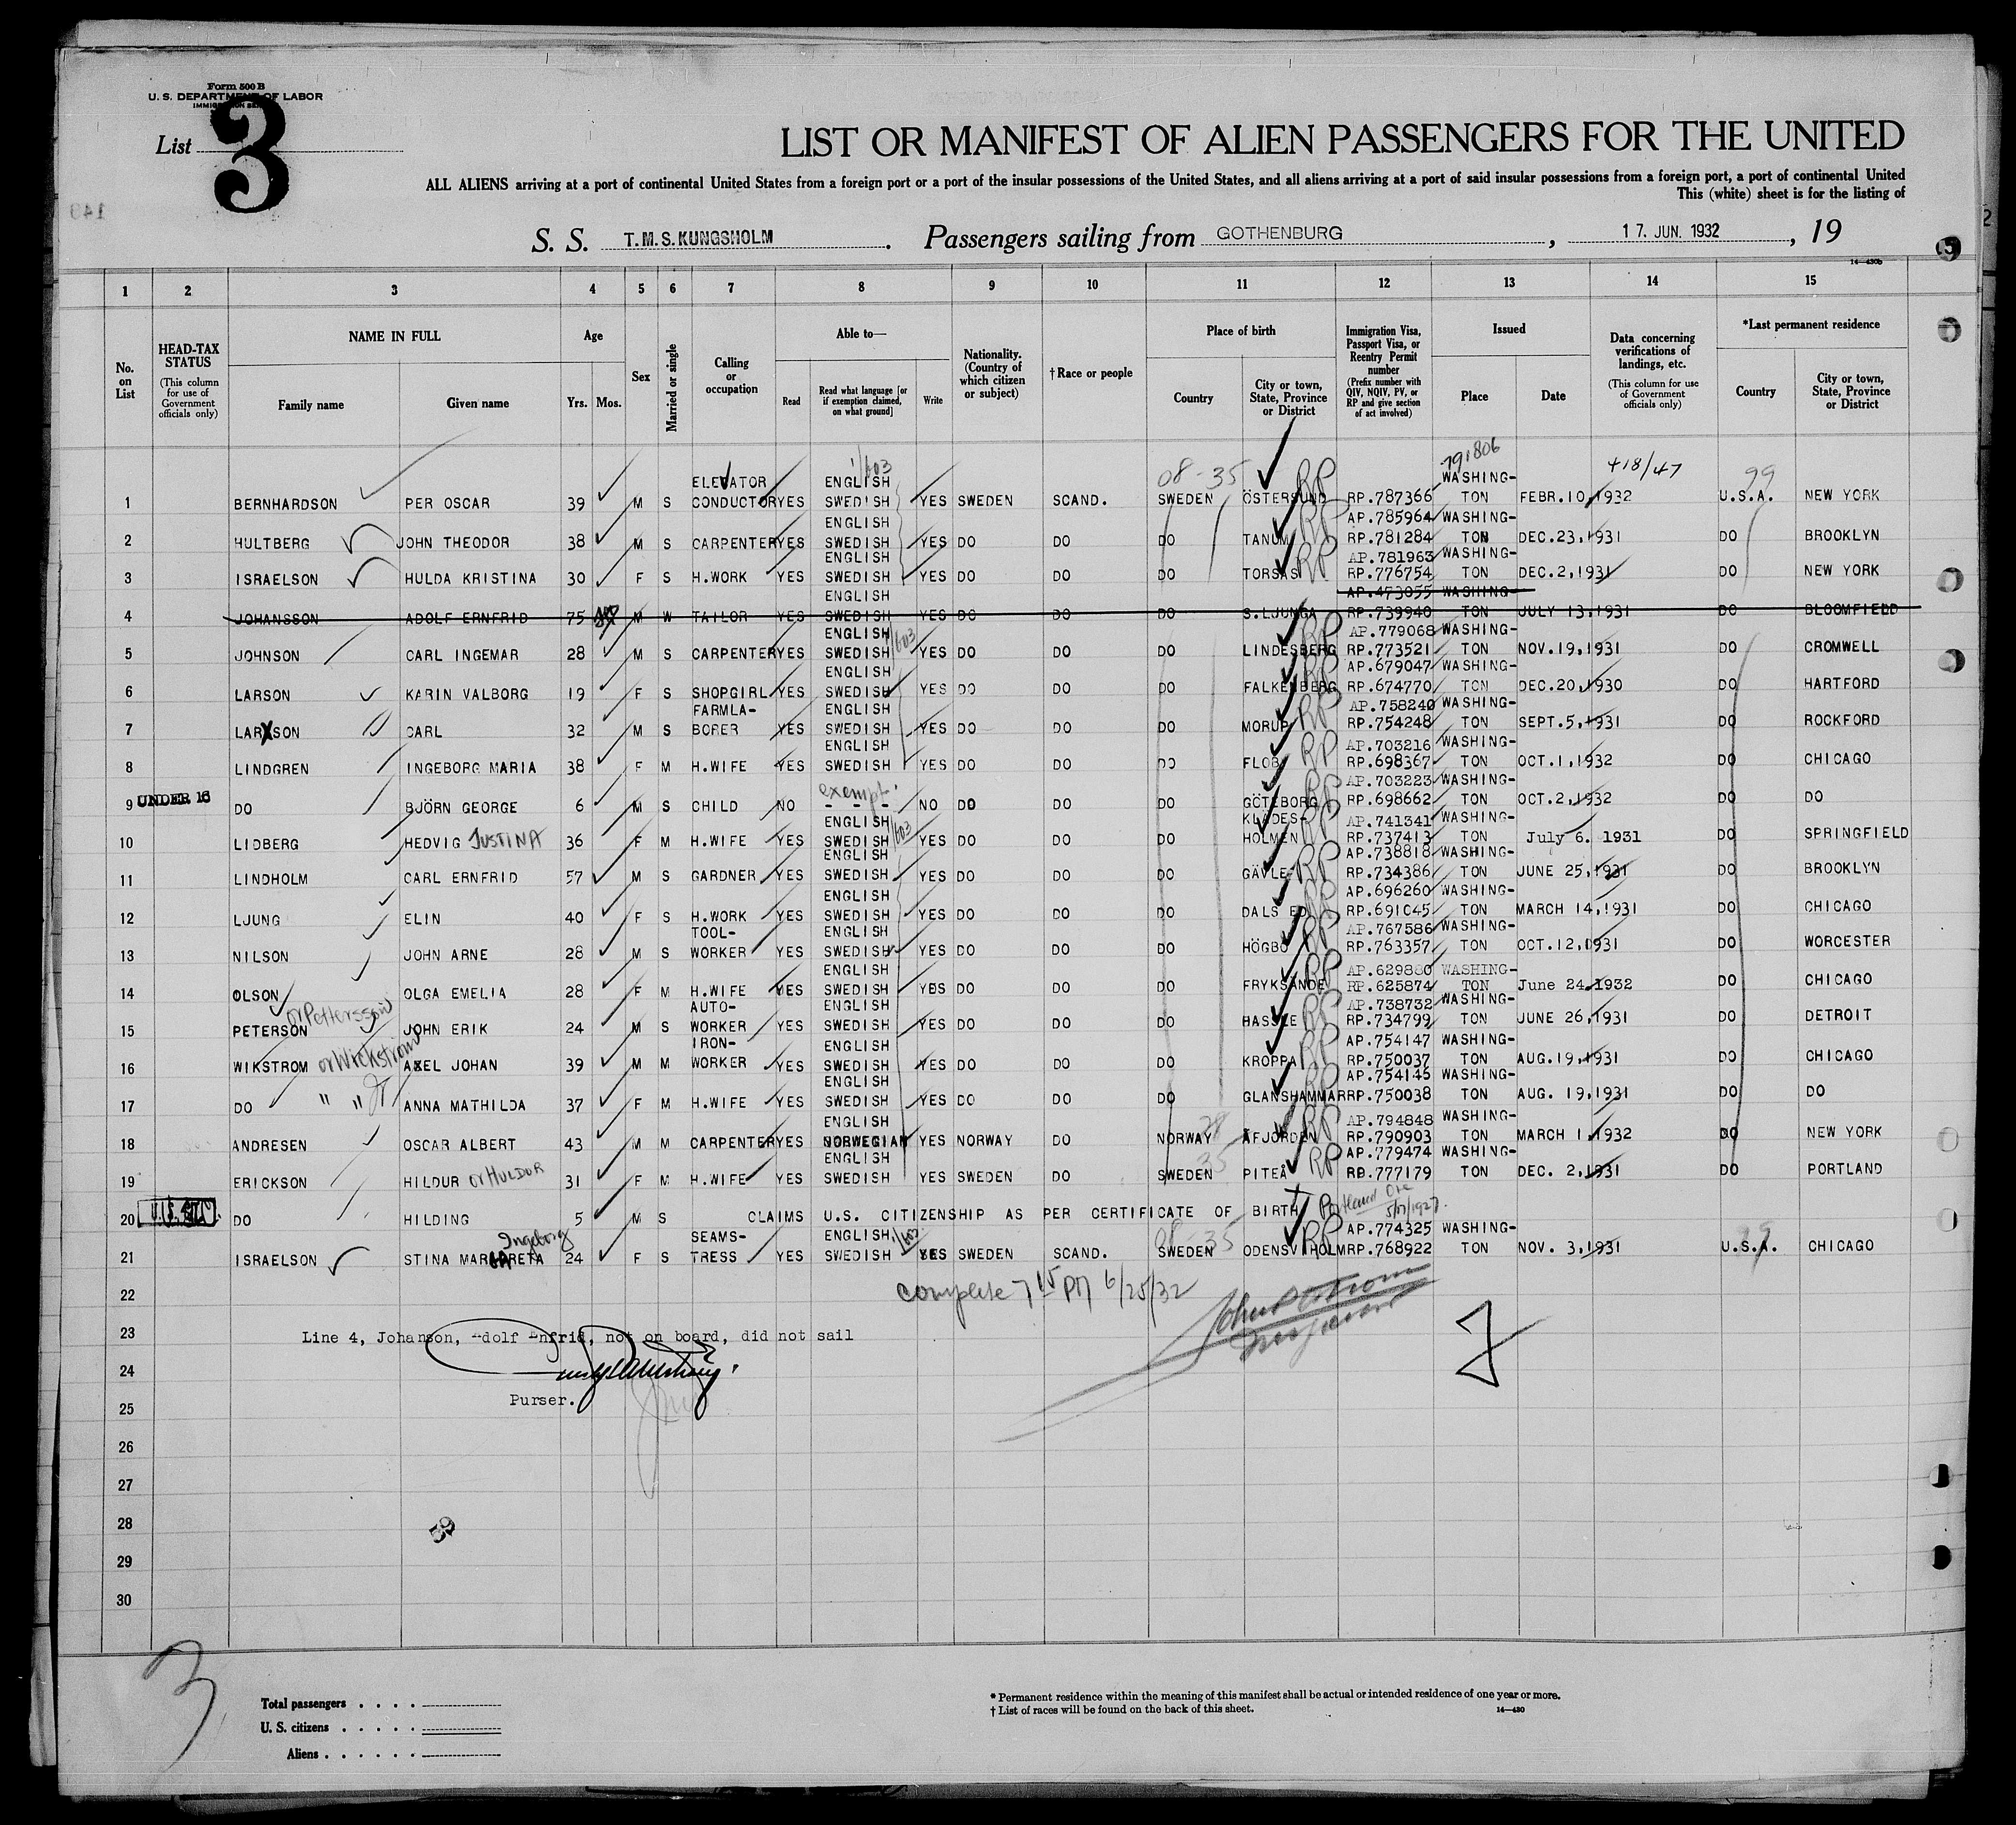 Form 500 B
U. S. DEPARTMENT OF LABOR
List 3
LIST OR MANIFEST OF ALIEN PASSENGERS FOR THE UNITED
ALL ALIENS arriving at a port of continental United States from a foreign port or a port of the insular possessions of the United States, and all aliens arriving at a port of said insular possessions from a foreign port, a port of continental United
This (white) sheet is for the listing of
S. S. T.M.S.KUNGSHOLM. Passengers sailing from GOTHENBURG, 17. JUN. 1932, 19
14—430b
1 2 3 4 5 6 7 8 9 10 11 12 13 14 15
No. on List
HEAD-TAX STATUS (This column for use of Government officials only)
NAME IN FULL
Family name
Given name
Age
Yrs. Mos.
Sex
Married or single
Calling or occupation
Able to—
Read
Read what language [or if exemption claimed, on what ground]
Write
Nationality. (Country of which citizen or subject)
†Race or people
Place of birth
Country
City or town, State, Province or District
Immigration Visa, Passport Visa, or Reentry Permit number (Prefix number with QIV, NQIV, PV, or RP and give section of act involved)
Issued
Place
Date
Data concerning verifications of landings, etc. (This column for use of Government officials only)
*Last permanent residence
Country
City or town, State, Province or District
1/603 08-35 791806 418/47 99
ELEVATOR ENGLISH RP WASHING-
1 BERNHARDSON PER OSCAR 39 M S CONDUCTOR YES SWEDISH YES SWEDEN SCAND. SWEDEN ÖSTERSUND RP.787366 TON FEBR.10,1932 U.S.A. NEW YORK
ENGLISH RP AP.785964 WASHING-
2 HULTBERG JOHN THEODOR 38 M S CARPENTER YES SWEDISH YES DO DO DO TANUM RP.781284 TON DEC.23,1931 DO BROOKLYN
ENGLISH RP AP.781963 WASHING-
3 ISRAELSON HULDA KRISTINA 30 F S H.WORK YES SWEDISH YES DO DO DO TORSÅS RP.776754 TON DEC.2,1931 DO NEW YORK
ENGLISH AP.473055 WASHING-
4 JOHANSSON ADOLF ERNFRID 75 M W TAILOR YES SWEDISH YES DO DO DO S.LJUNGA RP.739940 TON JULY 13,1931 DO BLOOMFIELD
ENGLISH 1/603 RP AP.779068 WASHING-
5 JOHNSON CARL INGEMAR 28 M S CARPENTER YES SWEDISH YES DO DO DO LINDESBERG RP.773521 TON NOV.19,1931 DO CROMWELL
ENGLISH RP AP.679047 WASHING-
6 LARSON KARIN VALBORG 19 F S SHOPGIRL YES SWEDISH YES DO DO DO FALKENBERG RP.674770 TON DEC.20,1930 DO HARTFORD
FARMLA- ENGLISH RP AP.758240 WASHING-
7 LARXSON CARL 32 M S BORER YES SWEDISH YES DO DO DO MORUP RP.754248 TON SEPT.5,1931 DO ROCKFORD
ENGLISH RP AP.703216 WASHING-
8 LINDGREN INGEBORG MARIA 38 F M H.WIFE YES SWEDISH YES DO DO DO FLOBY RP.698367 TON OCT.1,1932 DO CHICAGO
UNDER 16 exempt. RP AP.703223 WASHING-
9 DO BJÖRN GEORGE 6 M S CHILD NO - - - NO DO DO DO GÖTEBORG RP.698662 TON OCT.2,1932 DO DO
ENGLISH 1/603 KLÄDES- RP AP.741341 WASHING-
10 LIDBERG HEDVIG JUSTINA 36 F M H.WIFE YES SWEDISH YES DO DO DO HOLMEN RP.737413 TON July 6. 1931 DO SPRINGFIELD
ENGLISH RP AP.738818 WASHING-
11 LINDHOLM CARL ERNFRID 57 M S GARDNER YES SWEDISH YES DO DO DO GÄVLE RP.734386 TON JUNE 25,1931 DO BROOKLYN
ENGLISH RP AP.696260 WASHING-
12 LJUNG ELIN 40 F S H.WORK YES SWEDISH YES DO DO DO DALS ED RP.691045 TON MARCH 14,1931 DO CHICAGO
TOOL- ENGLISH RP AP.767586 WASHING-
13 NILSON JOHN ARNE 28 M S WORKER YES SWEDISH YES DO DO DO HÖGBO RP.763357 TON OCT.12,1931 DO WORCESTER
ENGLISH RP AP.629880 WASHING-
14 OLSON OLGA EMELIA 28 F M H.WIFE YES SWEDISH YES DO DO DO FRYKSÄNDE RP.625874 TON June 24,1932 DO CHICAGO
or Pettersson AUTO- ENGLISH RP AP.738732 WASHING-
15 PETERSON JOHN ERIK 24 M S WORKER YES SWEDISH YES DO DO DO HASSLE RP.734799 TON JUNE 26,1931 DO DETROIT
IRON- ENGLISH RP AP.754147 WASHING-
16 WIKSTROM or Wickstrom AXEL JOHAN 39 M M WORKER YES SWEDISH YES DO DO DO KROPPA RP.750037 TON AUG.19,1931 DO CHICAGO
ENGLISH RP AP.754145 WASHING-
17 DO " " ANNA MATHILDA 37 F M H.WIFE YES SWEDISH YES DO DO DO GLANSHAMMAR RP.750038 TON AUG. 19,1931 DO DO
ENGLISH 28 RP AP.794848 WASHING-
18 ANDRESEN OSCAR ALBERT 43 M M CARPENTER YES NORWEGIAN YES NORWAY DO NORWAY ÅFJORDEN RP.790903 TON MARCH 1,1932 DO NEW YORK
ENGLISH 35 RP AP.779474 WASHING-
19 ERICKSON HILDUR or HULDUR 31 F M H.WIFE YES SWEDISH YES SWEDEN DO SWEDEN PITEÅ RP.777179 TON DEC. 2,1931 DO PORTLAND
20 DO HILDING 5 M S CLAIMS U.S. CITIZENSHIP AS PER CERTIFICATE OF BIRTH Portland Ore 5/17/1927.
Ingeborg SEAMS- ENGLISH 1/603 08-35 RP AP.774325 WASHING- 99
21 ISRAELSON STINA MARGARETA 24 F S TRESS YES SWEDISH YES SWEDEN SCAND. SWEDEN ODENSVIHOLM RP.768922 TON NOV. 3,1931 U.S.A. CHICAGO
22 complete 7 15 PM 6/25/32
23 Line 4, Johanson, Adolf Enfrid, not on board, did not sail
24
Purser.
25
26
27
28 59
29
30
3
Total passengers . . . .
U. S. citizens . . . . .
Aliens . . . . . .
* Permanent residence within the meaning of this manifest shall be actual or intended residence of one year or more.
† List of races will be found on the back of this sheet.
14—430